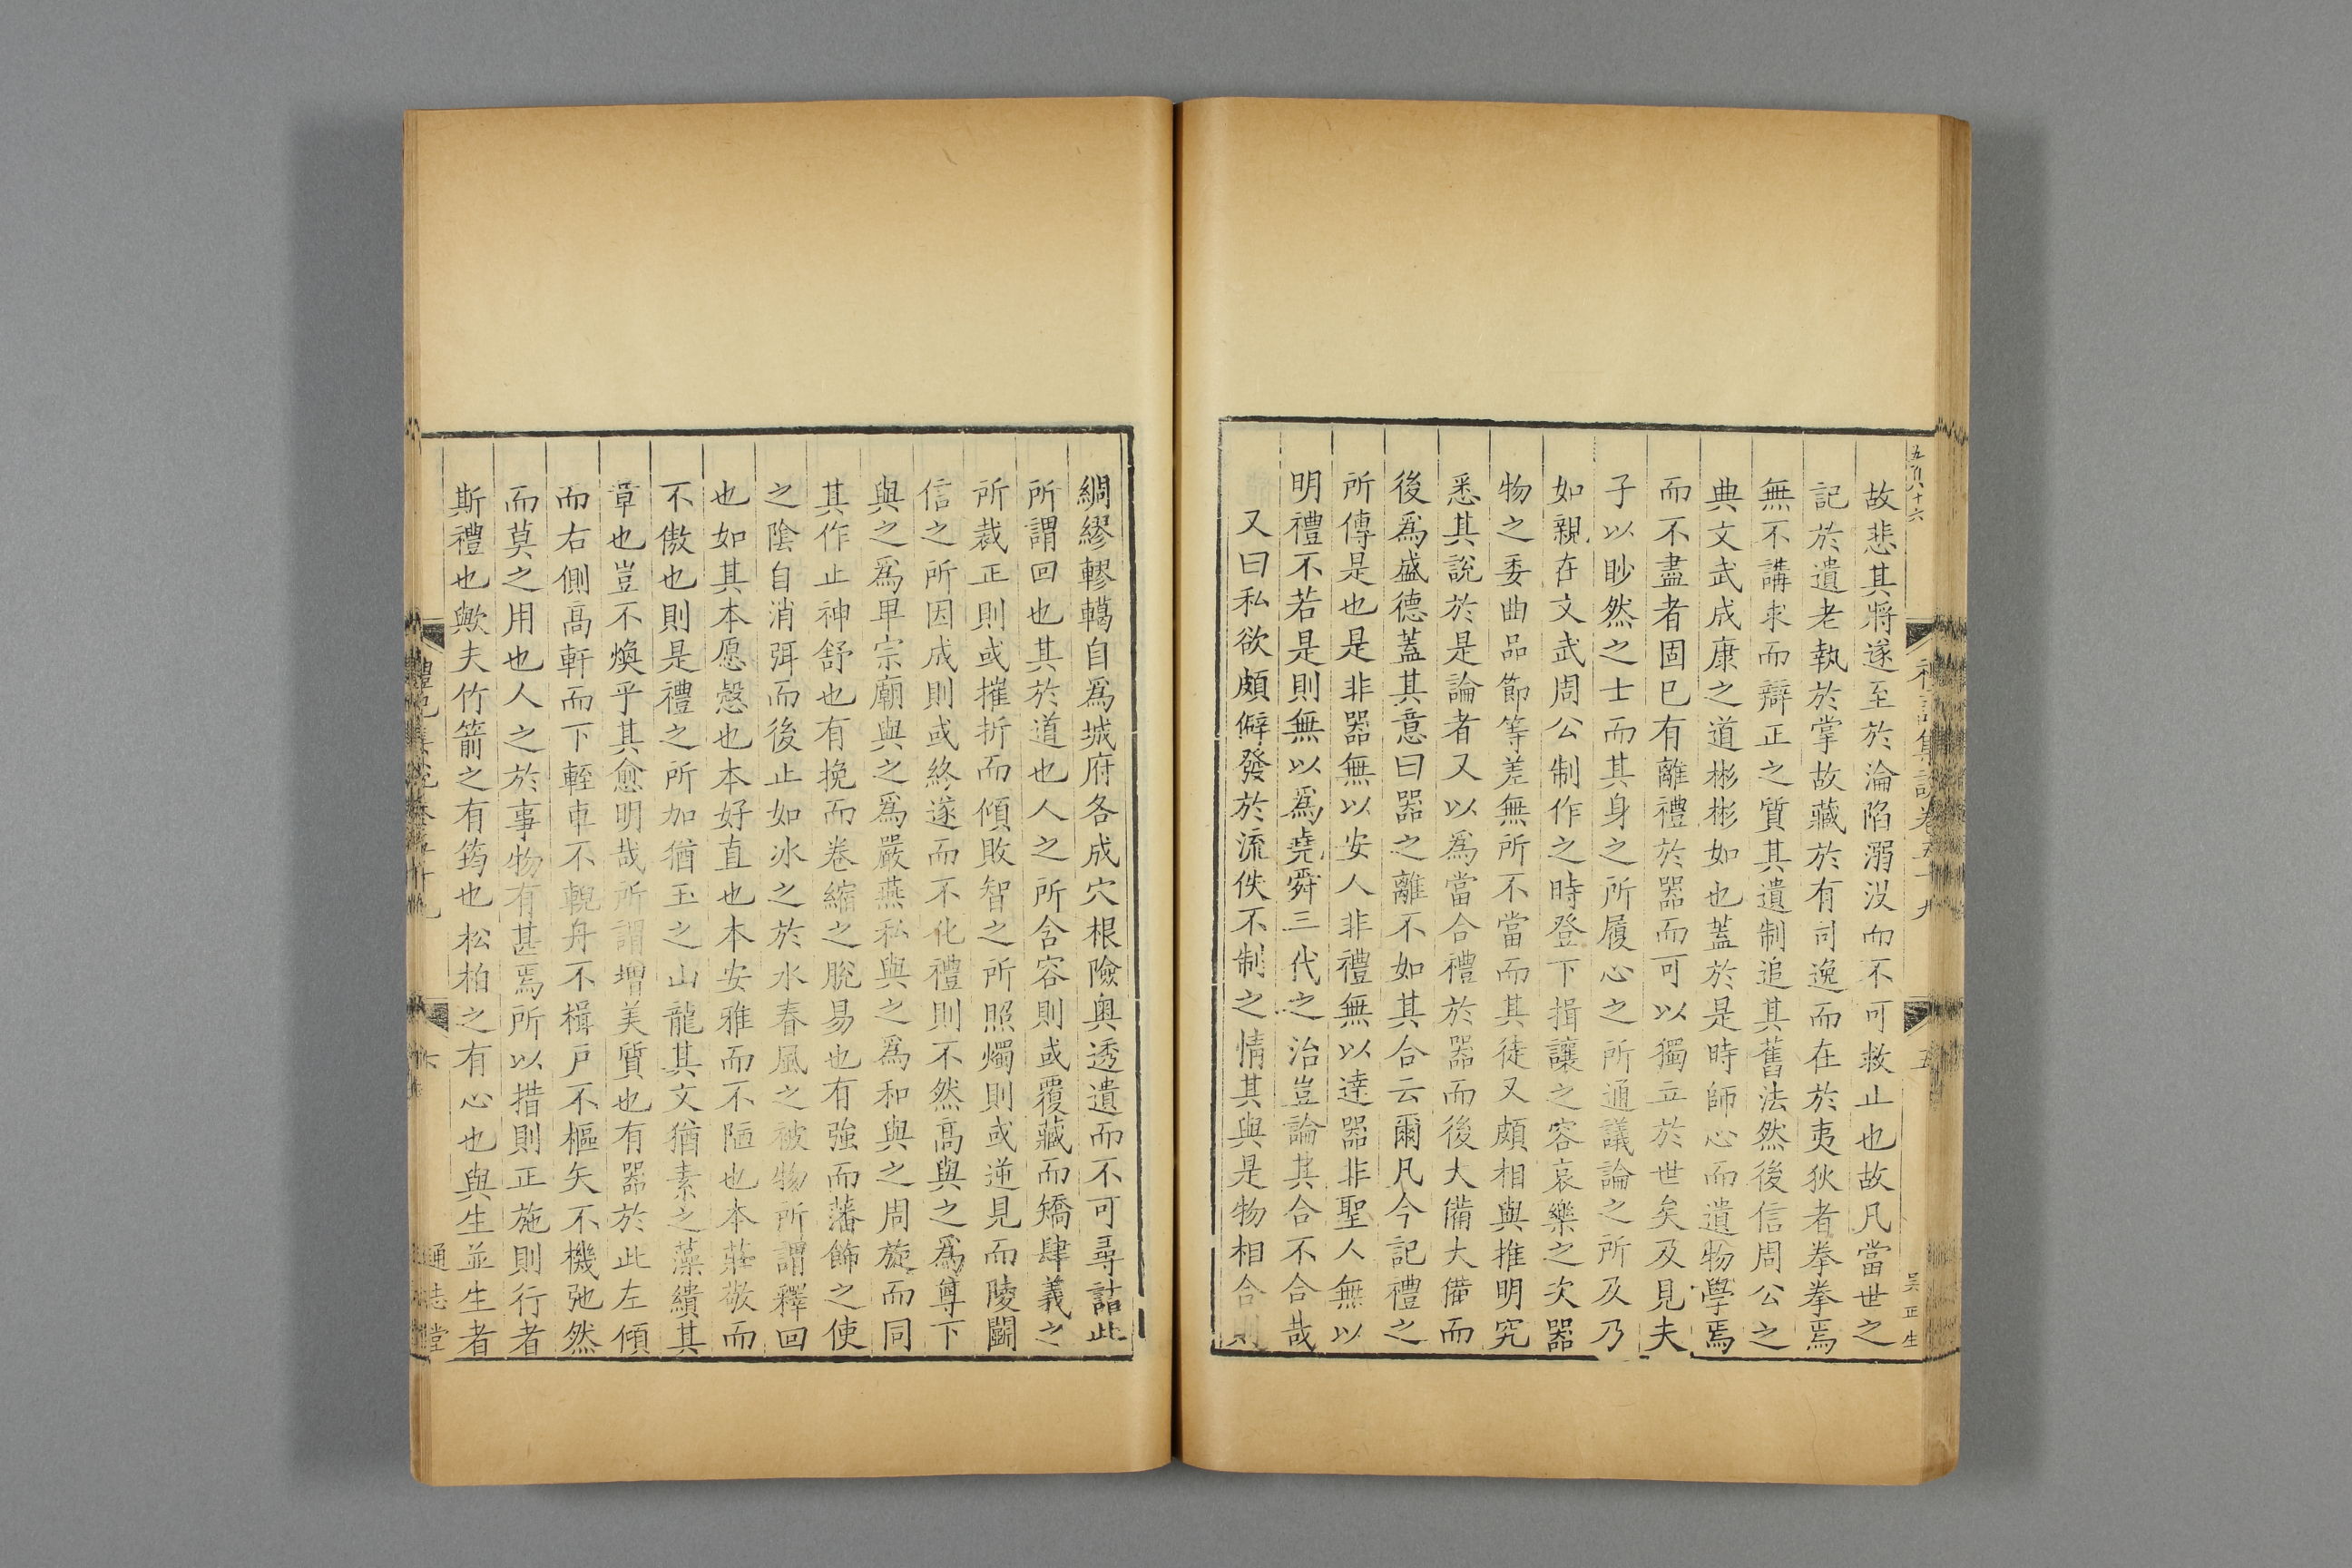 故悲其將遂至於淪陷溺没而不可救止也故凡當世之
記於遺老執於掌故藏於有司逸而在於夷狄者拳拳焉
無不講求而辯正之質其遺制追其舊法然後信周公之
典文武成康之道彬彬如也蓋於是時師心而遺物學焉
而不盡者固已有離禮於器而可以獨立於世矣及見夫
子以眇然之士而其身之所履心之所通議論之所及乃
如親在文武周公制作之時登下揖讓之容哀樂之次器
物之委曲品節等差無所不當而其徒又頗相與推明究
悉其說於是論者又以爲當合禮於器而後大備大備而
後爲盛德蓋其意曰器之離不如其合云爾凡今記禮之
所傳是也是非器無以安人非禮無以達器非聖人無以
明禮不若是則無以爲堯舜三代之治豈論其合不合哉
又曰私欲頗僻發於流佚不制之情其與是物相合則
吴正生
綢繆轇轕自爲城府各成穴根險奥透遺而不可尋詰此
所謂回也其於道也人之所含容則或覆藏而矯肆義之
所裁正則或摧折而傾敗智之所照燭則或逆見而陵闘
信之所因成則或終遂而不化禮則不然髙與之爲尊下
與之爲卑宗廟與之爲嚴燕私與之爲和與之周旋而同
其作止神舒也有挽而卷縮之脫易也有強而藩飾之使
之陰自消弭而後止如冰之於水春風之被物所謂釋回
也如其本愿慤也本好直也本安雅而不陋也本莊敬而
不傲也則是禮之所加猶玉之山龍其文猶素之藻繢其
章也豈不煥乎其愈明哉所謂增美質也有器於此左傾
而右側髙軒而下輊車不輗舟不楫戸不樞矢不機弛然
而莫之用也人之於事物有甚焉所以措則正施則行者
斯禮也歟夫竹箭之有筠也松柏之有心也與生並生者
通志堂